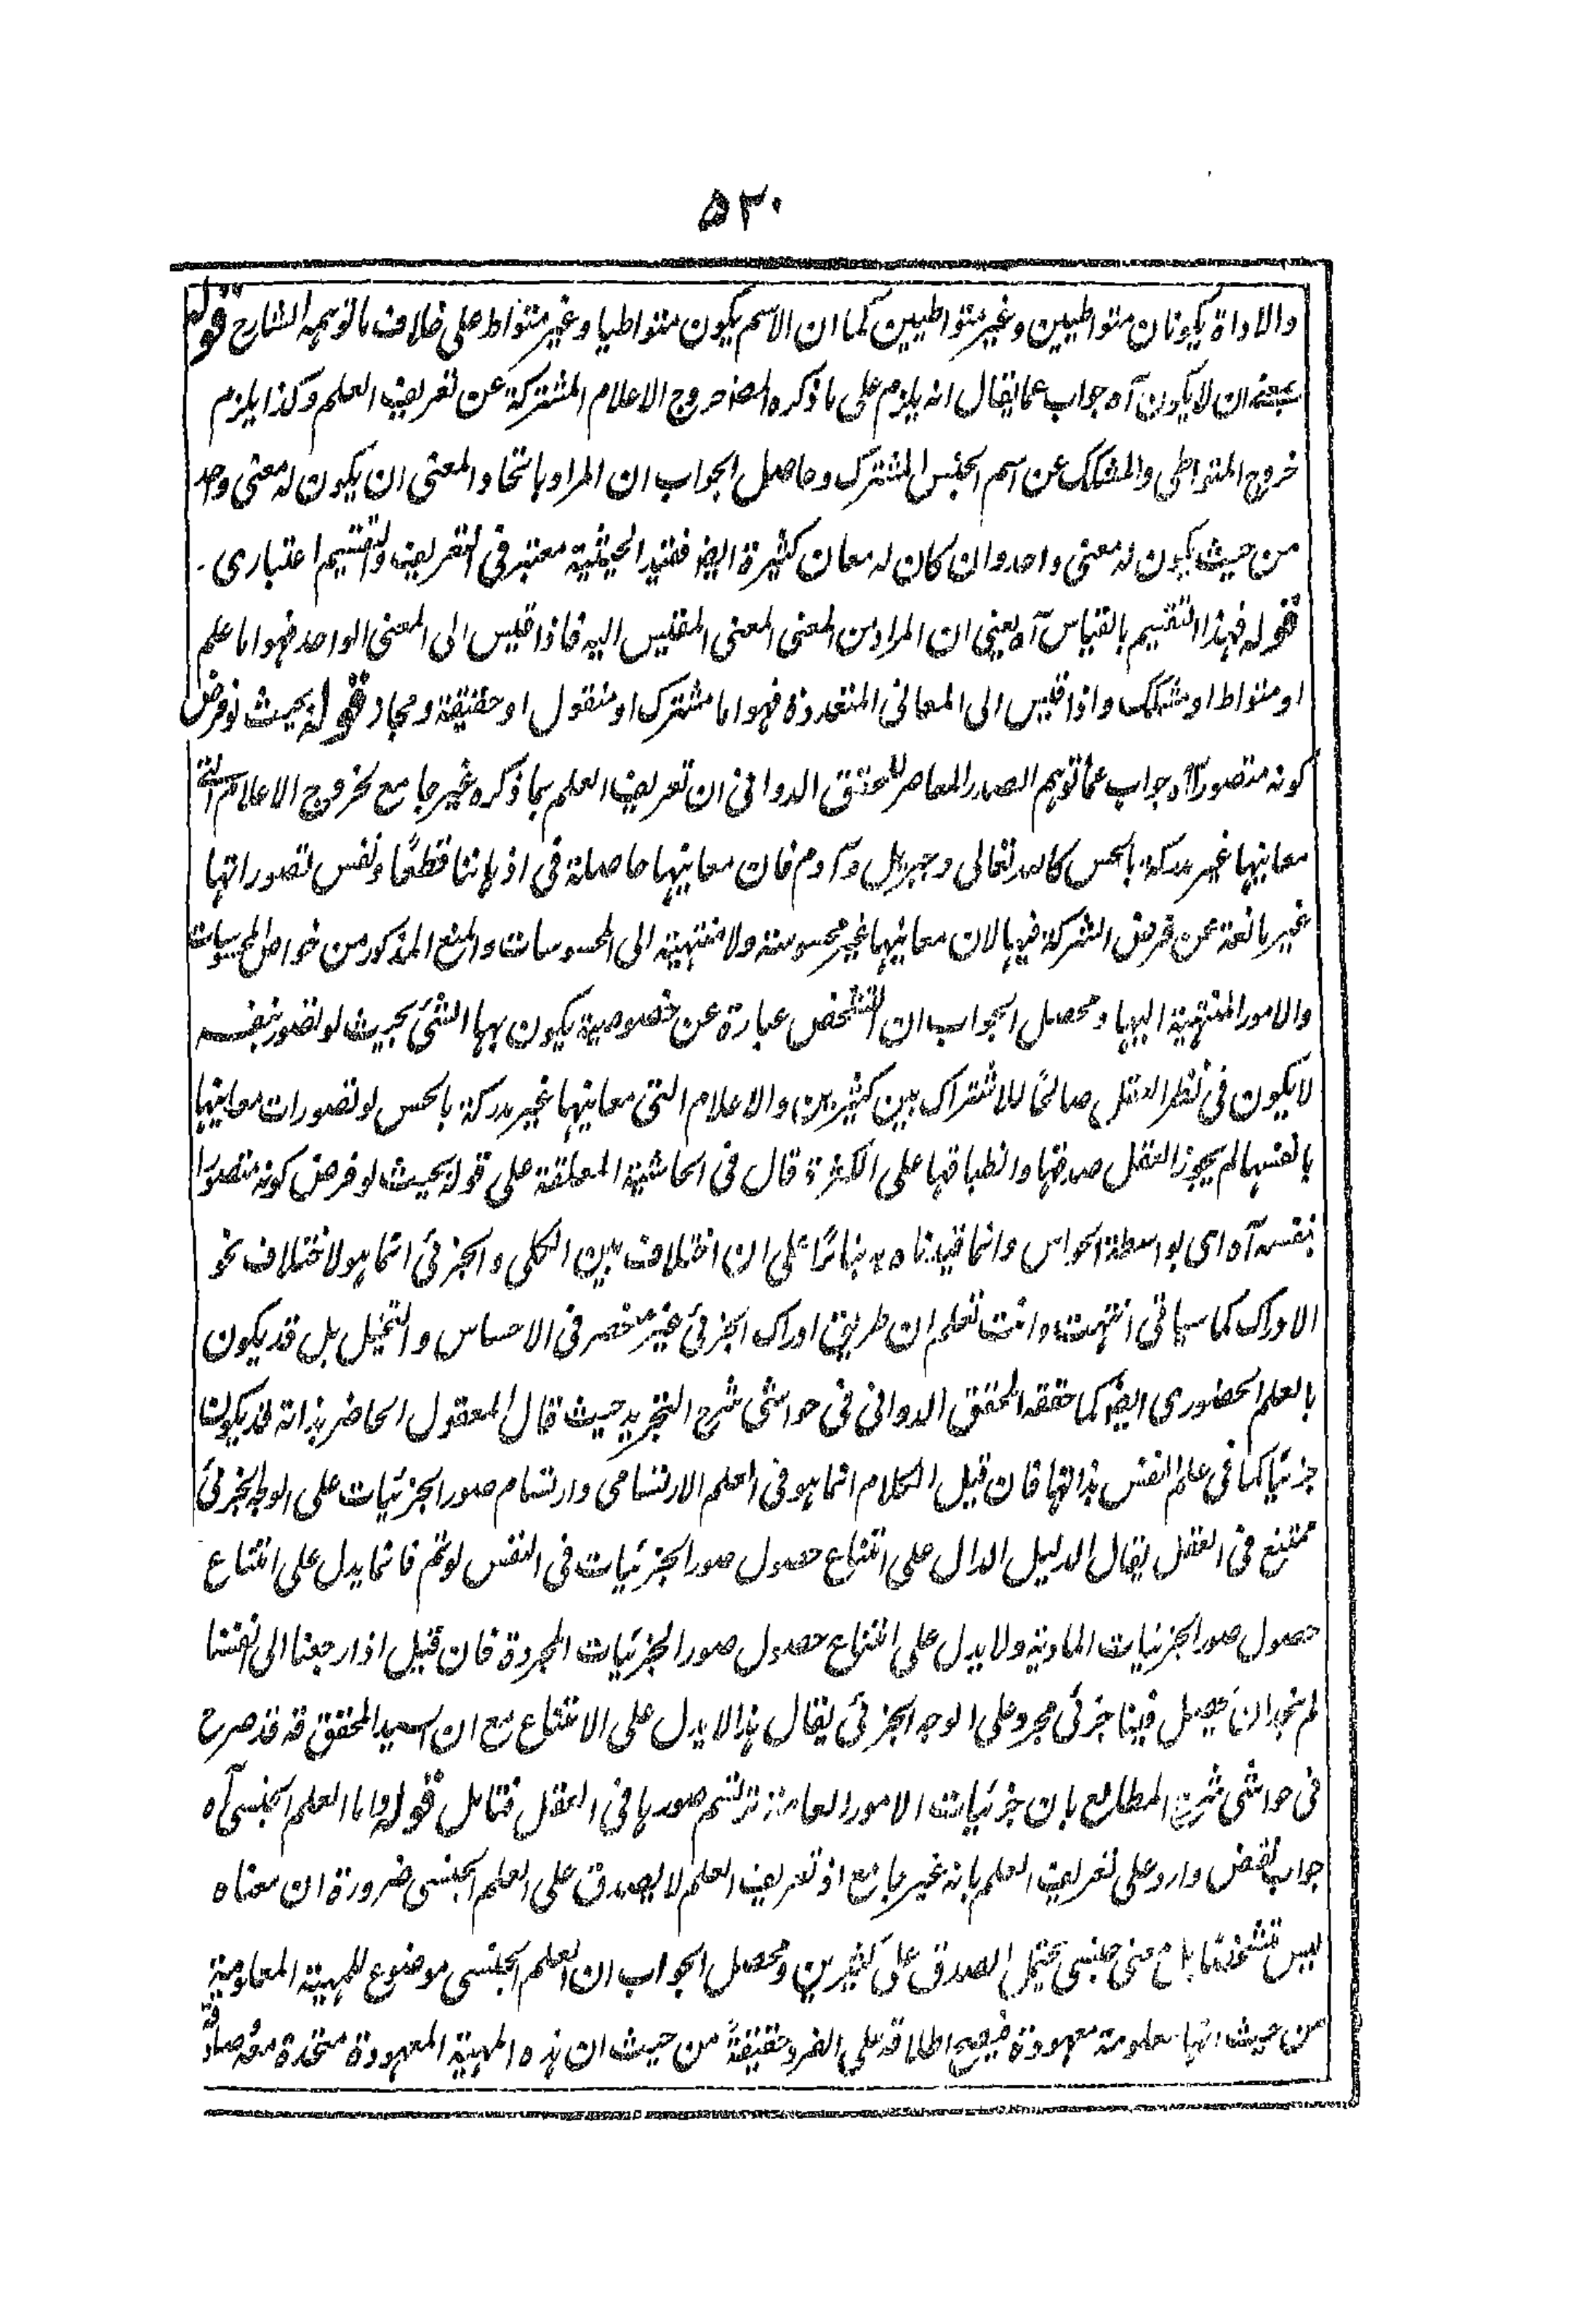 ٥٣٠
والاداة يكونان متواطيين وغير متواطيين كما ان الاسم يكون متواطيا وغير متواط على خلاف ما توهمه الشارح قوله
بمعنى ان لا يكون آه جواب عما يقال انه يلزم على ما ذكره المصنف خروج الاعلام المشتركة عن تعريف العلم وكذا يلزم
خروج المتواطى والمشكك عن اسم الجنس المشترك وحاصل الجواب ان المراد باتحاد المعنى ان يكون له معنى واحد
من حيث يكون له معنى واحد وان كان له معان كثيرة ايضا فقيد الحيثية معتبر فى التعريف والتقسيم اعتبارى.
قوله فهذا التقسيم بالقياس آه يعنى ان المراد من المعنى المعنى المقيس اليه فاذا قيس الى المعنى الواحد فهو اما علم
او متواط او مشكك واذا قيس الى المعانى المتعددة فهو اما مشترك او منقول او حقيقة ومجاز قوله بحيث لو فرض
كونه متصورا آه جواب عما توهم الصدر المعاصر للمحقق الدوانى ان تعريف العلم بما ذكره غير جامع لخروج الاعلام التى
معانيها غير مدركة بالحس كالله تعالى وجبريل وآدم فان معانيها حاصلة فى اذهاننا قطعًا ونفس تصوراتها
غير مانعة عن فرض الشركة فيها لان معانيها غير محسوسة ولا منتهية الى المحسوسات والمنع المذكور من خواص المحسوسات
والامور المنتهية اليها ومحصل الجواب ان التشخص عبارة عن خصوصية يكون بها الشئ بحيث لو تصور بنفسه
لا يكون فى نظر العقل صالحًا للاشتراك بين كثيرين والاعلام التى معانيها غير مدركة بالحس لو تصورات معانيها
بانفسها لم يجوز العقل صدقها وانطباقها على الكثرة قال فى الحاشية المعلقة على قوله بحيث لو فرض كونه متصورًا
بنفسه آه اى بواسطة الحواس وانما قيدناه به بناءًا على ان اختلاف بين الكلى والجزئى انما هو لاختلاف نحو
الادراك كما سياتى انتهت وانت تعلم ان طريق ادراك الجزئى غير منحصر فى الاحساس والتخيل بل قد يكون
بالعلم الحضورى ايضا كما حققه المحقق الدوانى فى حواشى شرح التجريد حيث قال المعقول الحاضر بذاته قد يكون
جزئيا كما فى علم النفس بذاتها فان قيل الكلام انما هو فى العلم الارتسامى وارتسام صور الجزئيات على الوجه الجزئى
ممتنع فى العقل يقال الدليل الدال على امتناع حصول صور الجزئيات فى النفس لو تم فانما يدل على امتناع
حصول صور الجزئيات المادية ولا يدل على امتناع حصول صور الجزئيات المجردة فان قيل اذا رجعنا الى انفسنا
لم نجد ان يحصل فينا جزئى مجرد على الوجه الجزئى يقال هذا لا يدل على الامتناع مع ان السيد المحقق قه قد صرح
فى حواشى شرح المطالع بان جزئيات الامور العامة ترتسم صورها فى العقل فتامل قوله واما العلم الجنسى آه
جواب نقض وارد على تعريف العلم بانه غير جامع اذ تعريف العلم لا يصدق على العلم الجنسى ضرورة ان معناه
ليس متشخصًا بل معنى جنسى يحتمل الصدق على كثيرين ومحصل الجواب ان العلم الجنسى موضوع للمهية المعلومية
من حيث انها معلومة معهودة فيصح اطلاقه على الفرد حقيقةً من حيث ان هذه المهية المعهودة متحدة معه صادقة